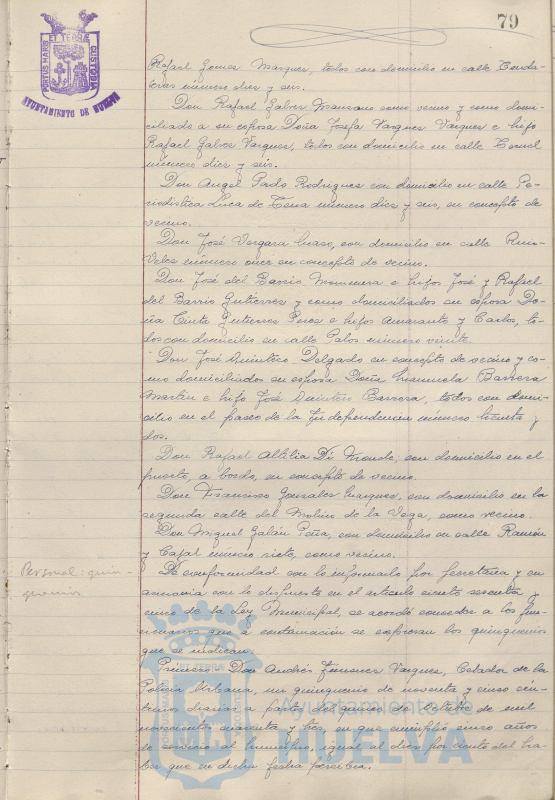 79
PORTUS MARIS ET TERRÆ CUSTODIA
AYUNTAMIENTO DE HUELVA
Rafael Gomes Marques, todos con domicilio en calle Tenda-
leras número diez y seis.
Don Rafael Galvez Manzano como vecino y como domi-
ciliado a su esposa Doña Josefa Vazquez Vazquez e hijo
Rafael Galvez Vazquez, todos con domicilio en calle
número diez y seis.
Don Angel Pardo Rodriguez con domicilio en calle Pe-
riodistica Luca de Tena número diez y seis, en concepto de
vecino.
Don José Vergara, con domicilio en calle
número once en concepto de vecino.
Don José del Barrio e hijos José y Rafael
del Barrio Gutierrez y como domiciliados su esposa Do-
ña Cinta Gutierrez Perez e hijos Amaranto y Carlos, to-
dos con domicilio en calle Palos número veinte.
Don José Quintero Delgado en concepto de vecino y co-
mo domiciliados su esposa Doña Manuela Barrera
Martin e hijo José Quintero Barrera, todos con domi-
cilio en el paseo de la Independencia número treinta y
dos.
Don Rafael con domicilio en el
puerto, a bordo, en concepto de vecino.
Don Francisco Gonzalez Marquez, con domicilio en la
segunda calle del Molino de la Vega, como vecino.
Don Miguel Galán Peña, con domicilio en calle Ramón
y Cajal número siete, como vecino.
Personal: quin-
quenios
De conformidad con lo informado por Secretaría y en
armonía con lo dispuesto en el artículo ciento sesenta y
cinco de la Ley Municipal, se acordó conceder a los fun-
cionarios que a continuación se expresan los quinquenios
que se indican.
Primero: Don Andrés Jimenez Vazquez, Celador de la
Policía Urbana, un quinquenio de noventa y cinco cén-
timos diarios a partir del quince de Octubre de mil
novecientos cuarenta y tres, en que cumplió cinco años
de servicio al Municipio, igual al diez por ciento del ha-
ber que en dicha fecha percibia.
Ayuntamiento de
HUELVA